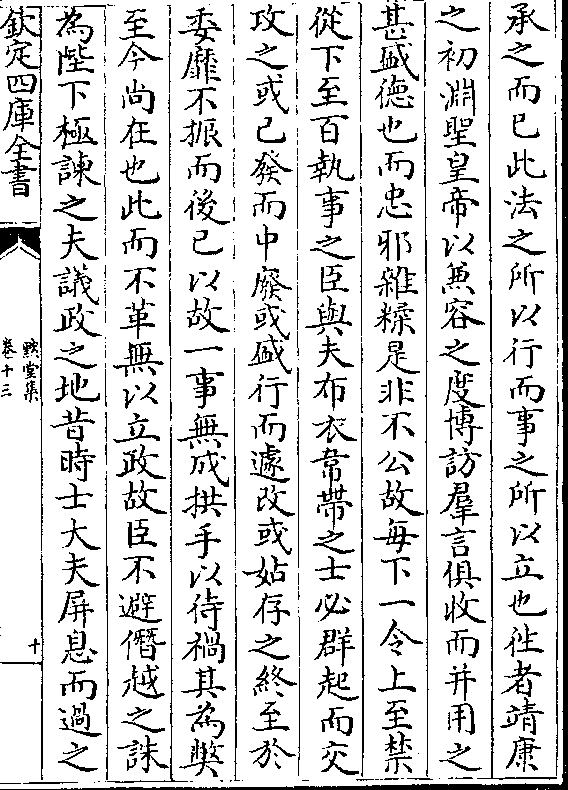 承之而已此法之所以行而事之所以立也徃者靖康
之初淵聖皇帝以兼容之度博訪羣言俱收而并用之
甚盛徳也而忠邪雜糅是非不公故每下一令上至禁
從下至百執事之臣與夫布衣韋帶之士必群起而交
攻之或已發而中廢或盛行而遽改或姑存之終至於
委靡不振而後已以故一事無成拱手以待禍其為弊
至今尚在也此而不革無以立政故臣不避僭越之誅
為陛下極諫之夫議政之地昔時士大夫屏息而過之
欽定四庫全書
黙堂集
卷十三
十